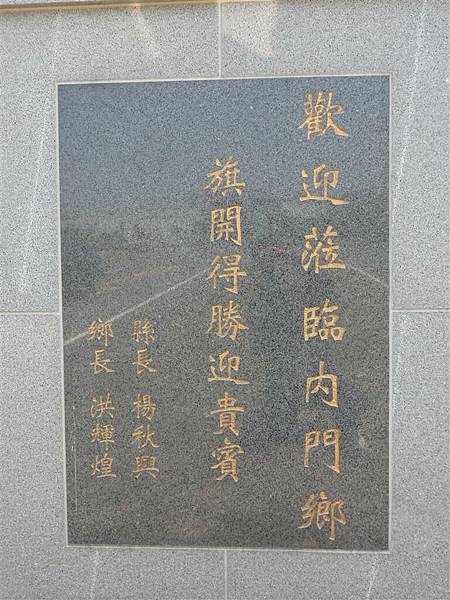 歡迎蒞臨內門鄉
旗開得勝迎貴賓
縣長 楊秋興
鄉長 洪輝煌